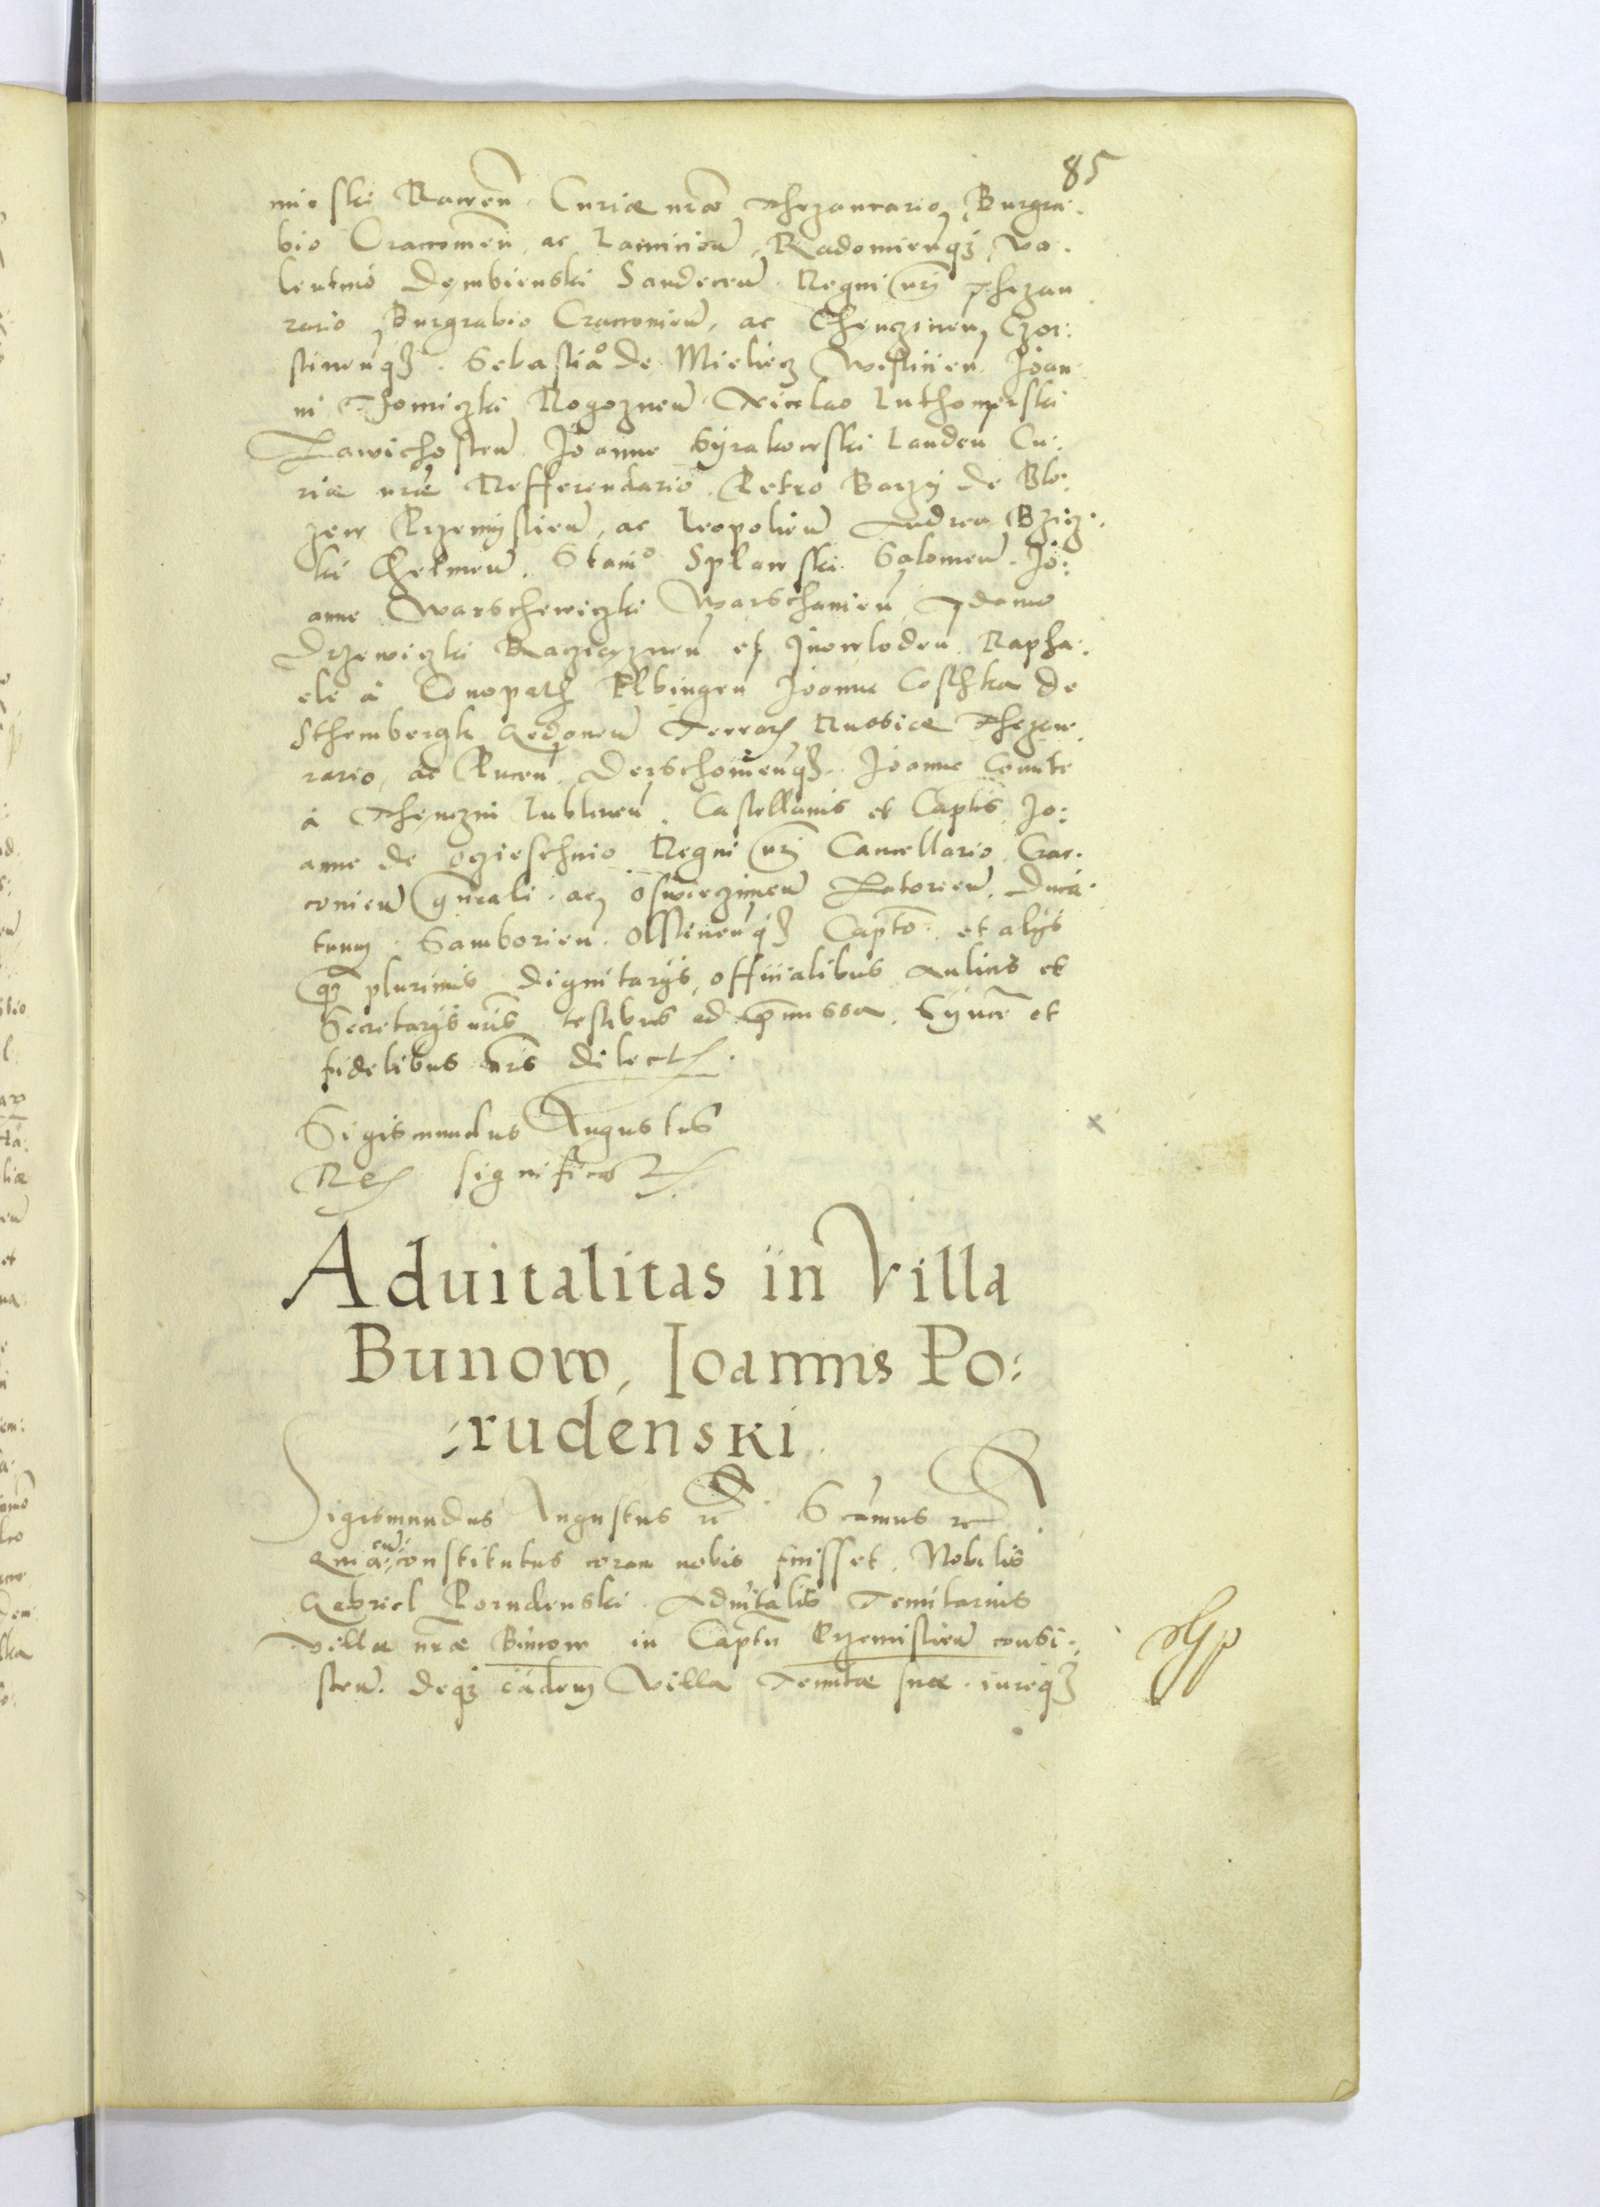 85
mieski Rawen̄ Curiæ nr̄æ Thezaurario, Burgra:
bio Cracovien̄ ac Lanicien̄, Radomien̄qȝ, Va:
lentino Dembienski Sandecen̄ Regni nr̄i Thezau
rario Burgrabio Cracovien̄, ac Chenczinen̄ Czor:
stinen̄qȝ. Sebastiā⁰ de Mieliecz Wislicien̄ Joan
ni Thomiczki Rogoznen̄ Nicolao Luthomirski
Zawichosten̄ Joanne Syrakowski Landen̄ Cu:
riæ nr̄æ Refferendario. Petro Barzy de Blo:
zew Przemyslien̄, ac Leopolien̄ Andrea
ki Chelmen̄. Stani⁰ Splawski Jo:
anne Warschewiczki Warschavien̄ Adamo
Drzewiczki et Inowloden̄. Rapha:
ele à Conopath Elbingen̄ Joanne Costhka de
Sthembergk Gedanen̄ Terrar̄ Prussiæ Thezau
rario, ac Pucen̄ Derschovien̄qȝ. Joanne Comite
à Thenczin Lublinen̄. Castellanis et Captis Jo:
anne de Oczieschino Regni nr̄i Cancellario Crac:
covien̄ gn̄rali. ac, Oswieczimen̄ Zatorien̄. Duca:
tuum. Samborien̄. Olstinen̄qȝ Capt̄o. et alijs
qȝ plurimis Dignitarijs, officialibus Aulicis et
Secretarijs nr̄is testibus ad p̄missa. Syncē et
fidelibus nr̄is dilectis.
Sigismundus Augustus
Rex significavit.
Aduitalitas in Villa
Bunow, Joannis Po:
:rudenski
Sigismundus Augustus rc̄. S canus rc̄
Quia cū constitutus coram nobis fuisset. Nobilis
Gabriel Porudenski. Aduitalis Tenutarius
villæ nr̄æ Bunow in Captu Przemislien̄ consi:
sten̄. deqȝ eadem Villa Tenutæ suæ. iureqȝ